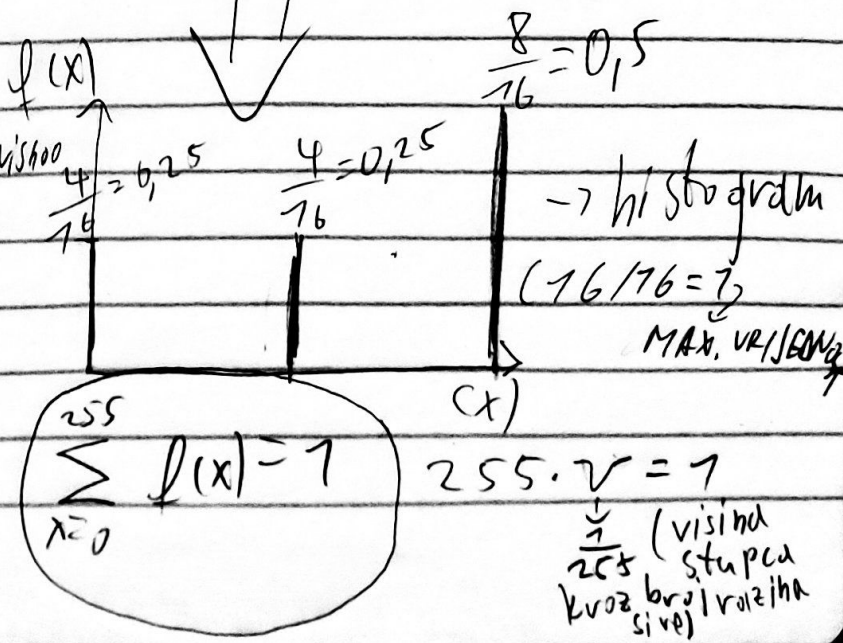 f(x)
8/16 = 0,5
4/16 = 0,25
4/16 = 0,25
-> histogram
(16/16 = 1)
MAX. VRIJEDNO
(x)
255
∑ f(x) = 1
x=0
255 · v = 1
1/255 (visina
stupca
kroz broj razina
sive)